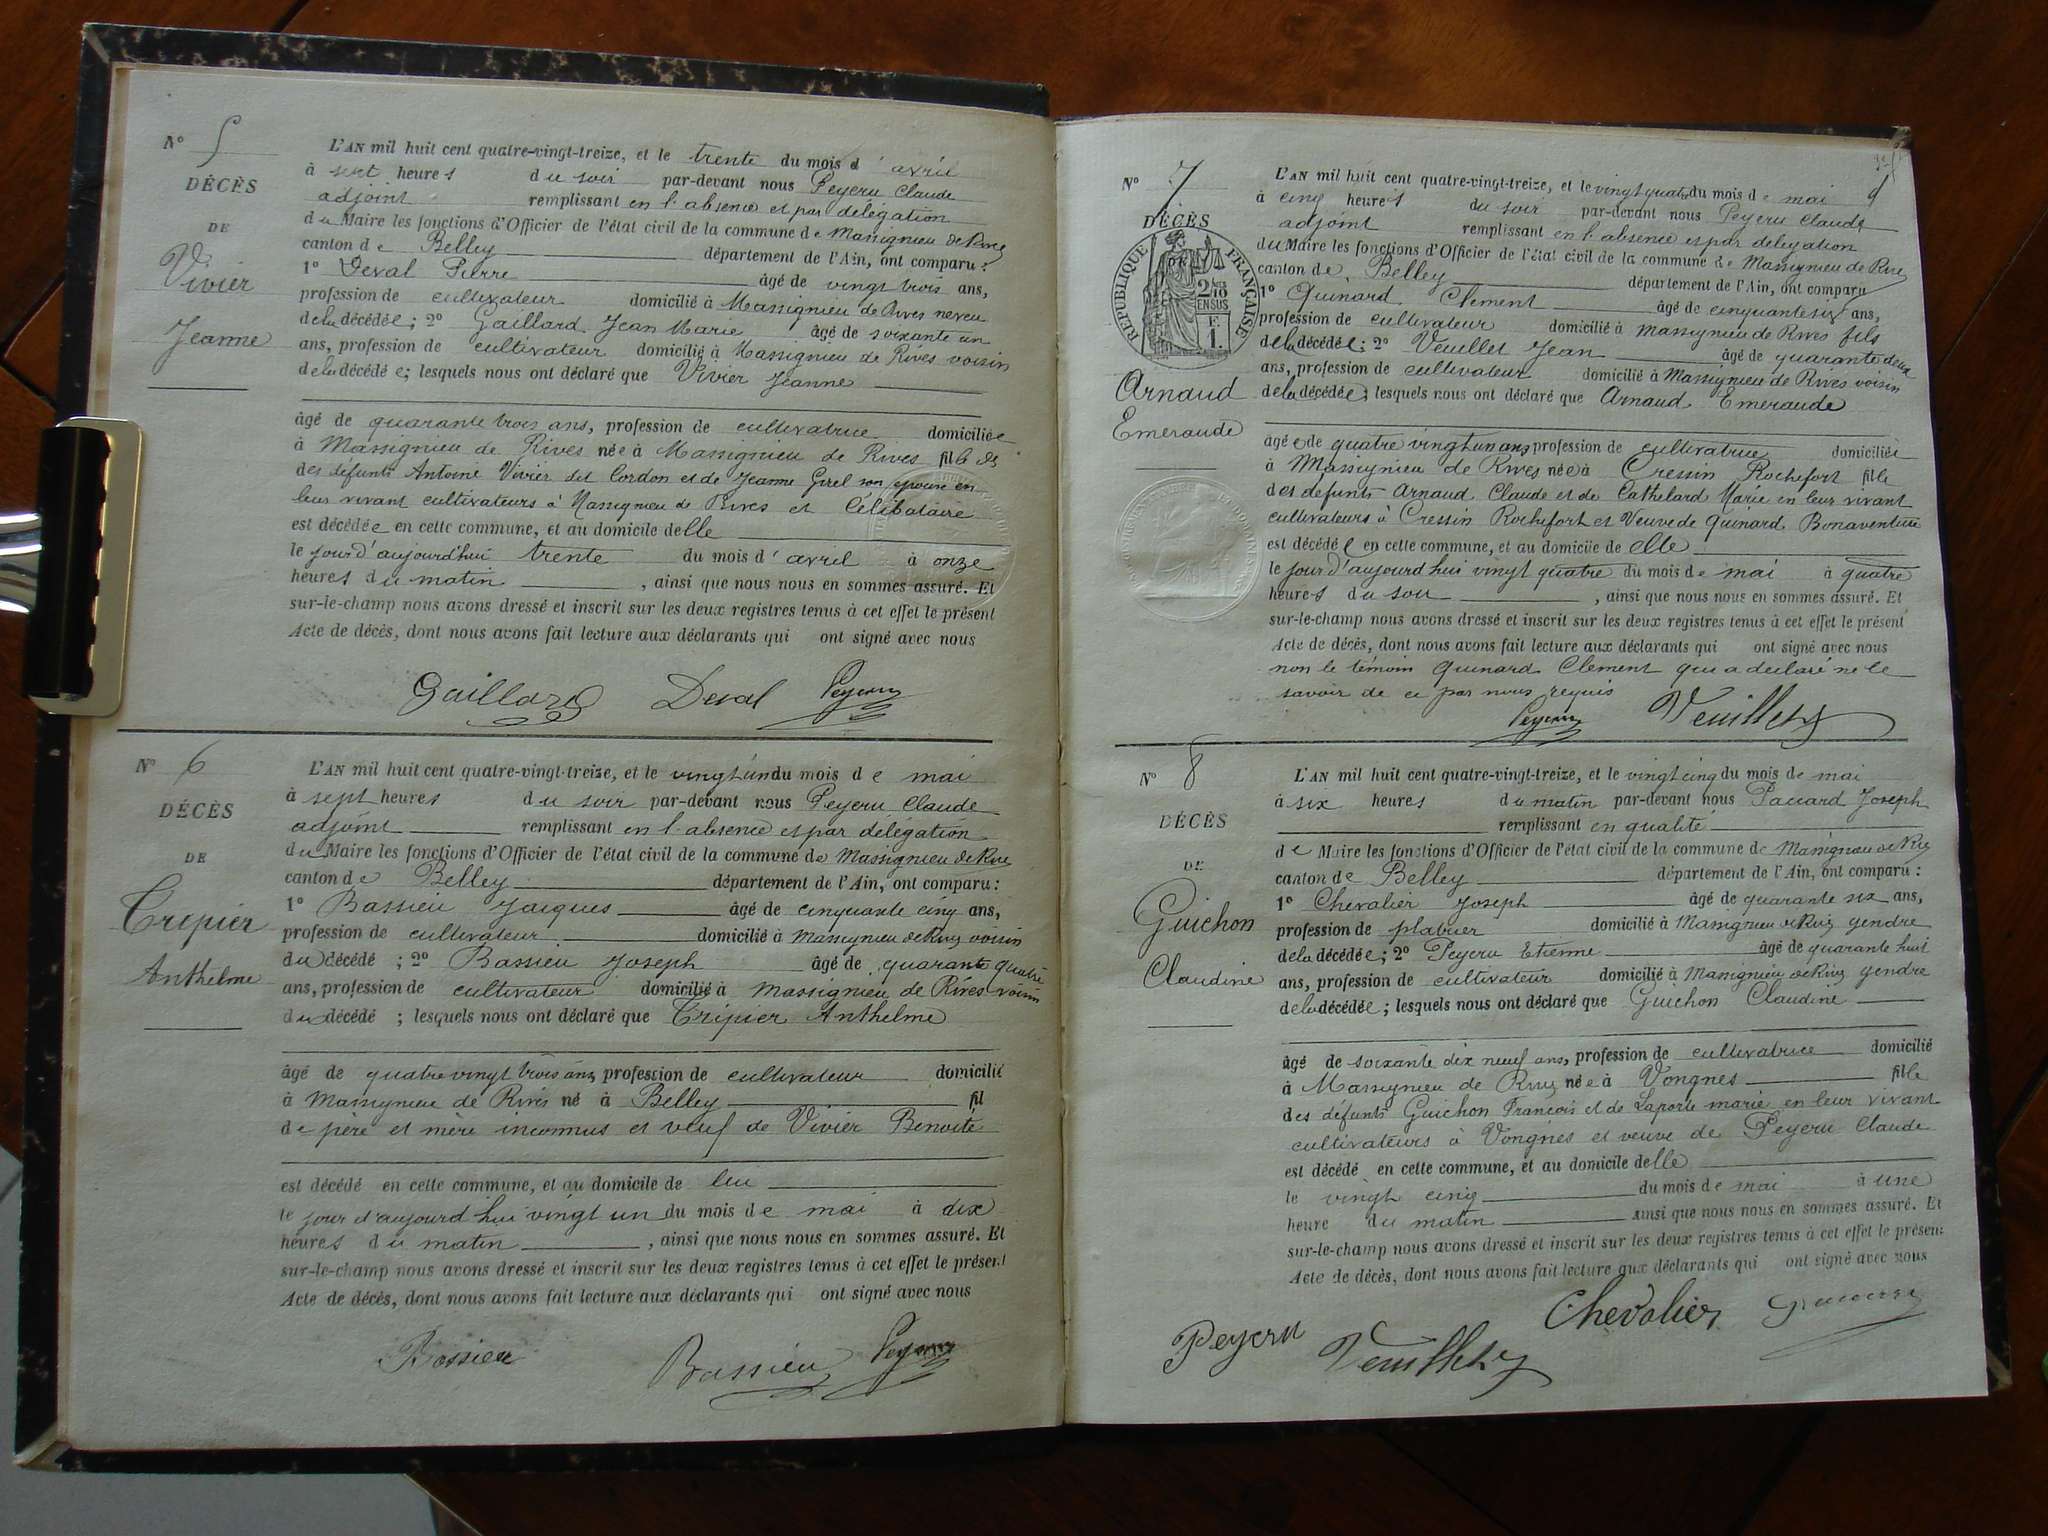 N° 5
DÉCÈS
DE
Vivier
Jeanne
L'AN mil huit cent quatre-vingt-treize, et le trente du mois d'avril
à sept heures du soir par-devant nous Peyeru Claude
adjoint remplissant en l'absence et par délégation
du Maire les fonctions d'Officier de l'état civil de la commune de Massignieu de Rives
canton de Belley département de l'Ain, ont comparu :
1° Deval Pierre âgé de vingt trois ans,
profession de cultivateur domicilié à Massignieu de Rives neveu
de la décédée; 2° Gaillard Jean Marie âgé de soixante un
ans, profession de cultivateur domicilié à Massignieu de Rives voisin
de la décédée; lesquels nous ont déclaré que Vivier Jeanne
âgé de quarante trois ans, profession de cultivatrice domiciliée
à Massignieu de Rives née à Massignieu de Rives fille de
des défunts Antoine Vivier dit Cordon et de Jeanne Girel son épouse en
leur vivant cultivateurs à Massignieu de Rives et Célibataire
est décédée en cette commune, et au domicile delle
le jour d'aujourd'hui trente du mois d'avril à onze
heures du matin , ainsi que nous nous en sommes assuré. Et
sur-le-champ nous avons dressé et inscrit sur les deux registres tenus à cet effet le présent
Acte de décès, dont nous avons fait lecture aux déclarants qui ont signé avec nous
Gaillard Deval Peyeru
N° 6
DÉCÈS
DE
Tripier
Anthelme
L'AN mil huit cent quatre-vingt-treize, et le vingt un du mois de mai
à sept heures du soir par-devant nous Peyeru Claude
adjoint remplissant en l'absence et par délégation
du Maire les fonctions d'Officier de l'état civil de la commune de Massignieu de Rives
canton de Belley département de l'Ain, ont comparu :
1° Bassieu Jacques âgé de cinquante cinq ans,
profession de cultivateur domicilié à Massignieu de Rives voisin
du décédé ; 2° Bassieu Joseph âgé de quarante quatre
ans, profession de cultivateur domicilié à Massignieu de Rives voisin
du décédé ; lesquels nous ont déclaré que Tripier Anthelme
âgé de quatre vingt trois ans, profession de cultivateur domicilié
à Massignieu de Rives né à Belley fil
de père et mère inconnus et veuf de Vivier Benoite
est décédé en cette commune, et au domicile de lui
le jour d'aujourd'hui vingt un du mois de mai à dix
heures du matin , ainsi que nous nous en sommes assuré. Et
sur-le-champ nous avons dressé et inscrit sur les deux registres tenus à cet effet le présent
Acte de décès, dont nous avons fait lecture aux déclarants qui ont signé avec nous
Bassieu Bassieu Peyeru
N° 7
DÉCÈS
RÉPUBLIQUE FRANÇAISE
2/10 EN SUS
E. 1.
Arnaud
Emeraude
L'AN mil huit cent quatre-vingt-treize, et le vingt quatre du mois de mai
à cinq heures du soir par-devant nous Peyeru Claude
adjoint remplissant en l'absence et par délégation
du Maire les fonctions d'Officier de l'état civil de la commune de Massignieu de Rives
canton de Belley département de l'Ain, ont comparu
1° Quinard Clement âgé de cinquante six ans,
profession de cultivateur domicilié à Massignieu de Rives fils
de la décédée; 2° Veuillet Jean âgé de quarante deux
ans, profession de cultivateur domicilié à Massignieu de Rives voisin
de la décédée; lesquels nous ont déclaré que Arnaud Emeraude
âgée de quatre vingt un ans profession de cultivatrice domiciliée
à Massignieu de Rives née à Cressin Rochefort fille
des defunts Arnaud Claude et de Cathelard Marie en leur vivant
cultivateurs à Cressin Rochefort et Veuve de Quinard Bonaventure
est décédée en cette commune, et au domicile de elle
le jour d'aujourd'hui vingt quatre du mois de mai à quatre
heures du soir , ainsi que nous nous en sommes assuré. Et
sur-le-champ nous avons dressé et inscrit sur les deux registres tenus à cet effet le présent
Acte de décès, dont nous avons fait lecture aux déclarants qui ont signé avec nous
non le témoin Quinard Clement qui a declaré ne le
savoir de ce par nous requis
Peyeru Veuillet
N° 8
DÉCÈS
DE
Guichon
Claudine
L'AN mil huit cent quatre-vingt-treize, et le vingt cinq du mois de mai
à six heures du matin par-devant nous Paccard Joseph
remplissant en qualité
de Maire les fonctions d'Officier de l'état civil de la commune de Massignieu de Rives
canton de Belley département de l'Ain, ont comparu :
1° Chevalier Joseph âgé de quarante six ans,
profession de platrier domicilié à Massignieu de Rives gendre
de la décédée; 2° Peyeru Etienne âgé de quarante huit
ans, profession de cultivateur domicilié à Massignieu de Rives gendre
de la décédée; lesquels nous ont déclaré que Guichon Claudine
âgé de soixante dix neuf ans, profession de cultivatrice domicilié
à Massignieu de Rives née à Vongnes fille
des défunts Guichon François et de Laporte marie en leur vivant
cultivateurs à Vongnes et veuve de Peyeru Claude
est décédé en cette commune, et au domicile delle
le vingt cinq du mois de mai à une
heure du matin ainsi que nous nous en sommes assuré. Et
sur-le-champ nous avons dressé et inscrit sur les deux registres tenus à cet effet le présent
Acte de décès, dont nous avons fait lecture aux déclarants qui ont signé avec nous
Chevalier
Peyeru Veuillet